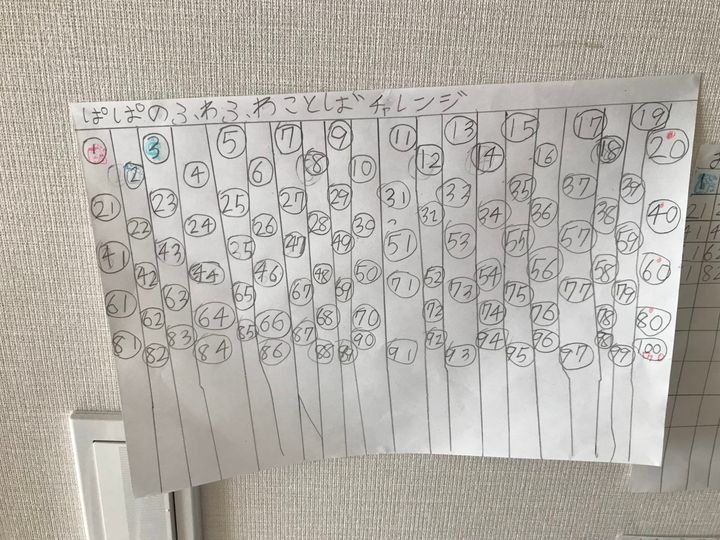 ぱぱのふわふわことばチャレンジ
1 3 5 7 9 11 13 15 17 19
2 4 6 8 10 12 14 16 18 20
21 23 25 27 29 31 33 35 37 39
22 24 26 28 30 32 34 36 38 40
41 43 25 47 49 51 53 55 57 59
42 44 46 48 50 52 54 56 58 60
61 63 65 67 69 71 73 75 77 79
62 64 66 68 70 72 74 76 78 80
81 83 85 87 89 91 93 95 97 99
82 84 86 88 90 92 94 96 98 100